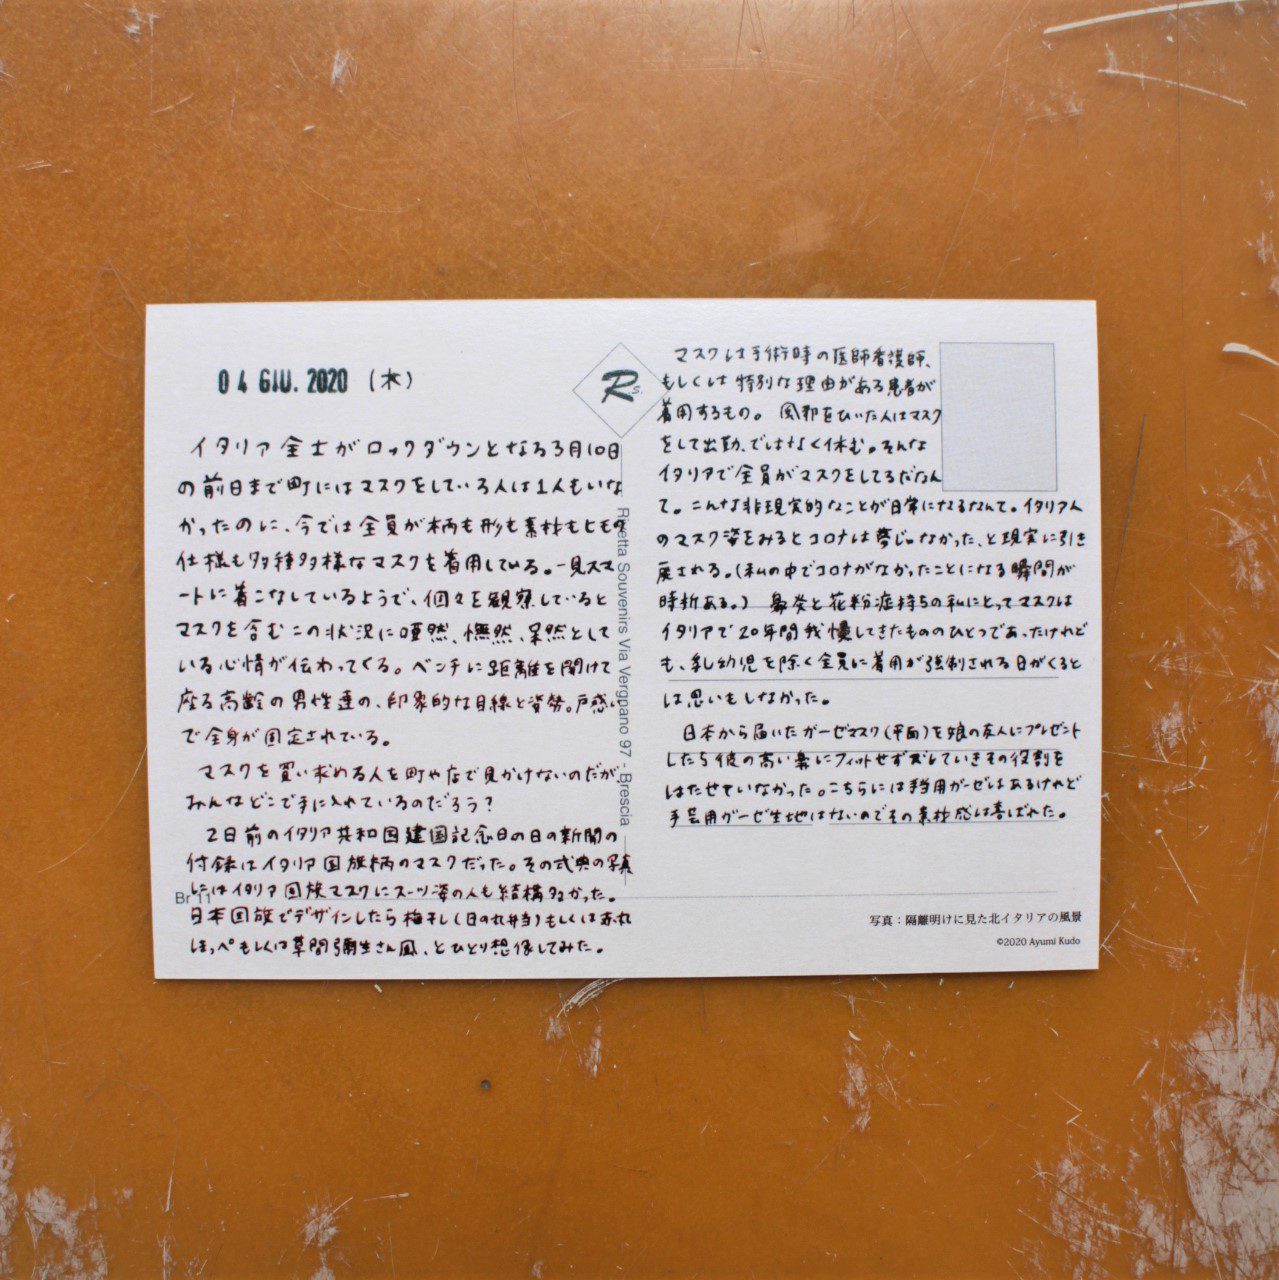 04 GIU. 2020 (木)
イタリア全土がロックダウンとなる3月10日
の前日まで町にはマスクをしている人は1人もいな
かったのに、今では全員が柄も形も素材もヒモの
仕様も多種多様なマスクを着用している。一見スマ
ートに着こなしているようで、個々を観察していると
マスクを含むこの状況に唖然、憮然、呆然として
いる心情が伝わってくる。ベンチに距離を開けて
座る高齢の男性達の、印象的な目線と姿勢。戸惑い
で全身が固定されている。
マスクを買い求める人を町や店で見かけないのだが、
みんなどこで手に入れているのだろう?
2日前のイタリア共和国建国記念日の日の新聞の
付録はイタリア国旗柄のマスクだった。その式典の写真
にはイタリア国旗マスクにスーツ姿の人も結構多かった。
日本国旗でデザインしたら梅干し(日の丸弁当)もしくは赤丸
ほっぺもしくは草間彌生さん風、とひとり想像してみた。
Br 11
Rs.
Rosetta Souvenirs Via Vergnano 97 - Brescia
マスクは手術時の医師看護師、
もしくは特別な理由がある患者が
着用するもの。風邪をひいた人はマスク
をして出勤、ではなく休む。そんな
イタリアで全員がマスクをしてるだなん
て。こんな非現実的なことが日常になるなんて。イタリア人
のマスク姿をみるとコロナは夢じゃなかった、と現実に引き
戻される。(私の中でコロナがなかったことになる瞬間が
時折ある。) 鼻炎と花粉症持ちの私にとってマスクは
イタリアで20年間我慢してきたもののひとつであったけれど
も、乳幼児を除く全員に着用が強制される日がくると
は思いもしなかった。
日本から届いたガーゼマスク(平面)を娘の友人にプレゼント
したら彼の高い鼻にフィットせずズレていきその役割を
はたせていなかった。こちらには手当用ガーゼはあるけれど
手芸用ガーゼ生地はないのでその素材感は喜ばれた。
写真:隔離明けに見た北イタリアの風景
©2020 Ayumi Kudo